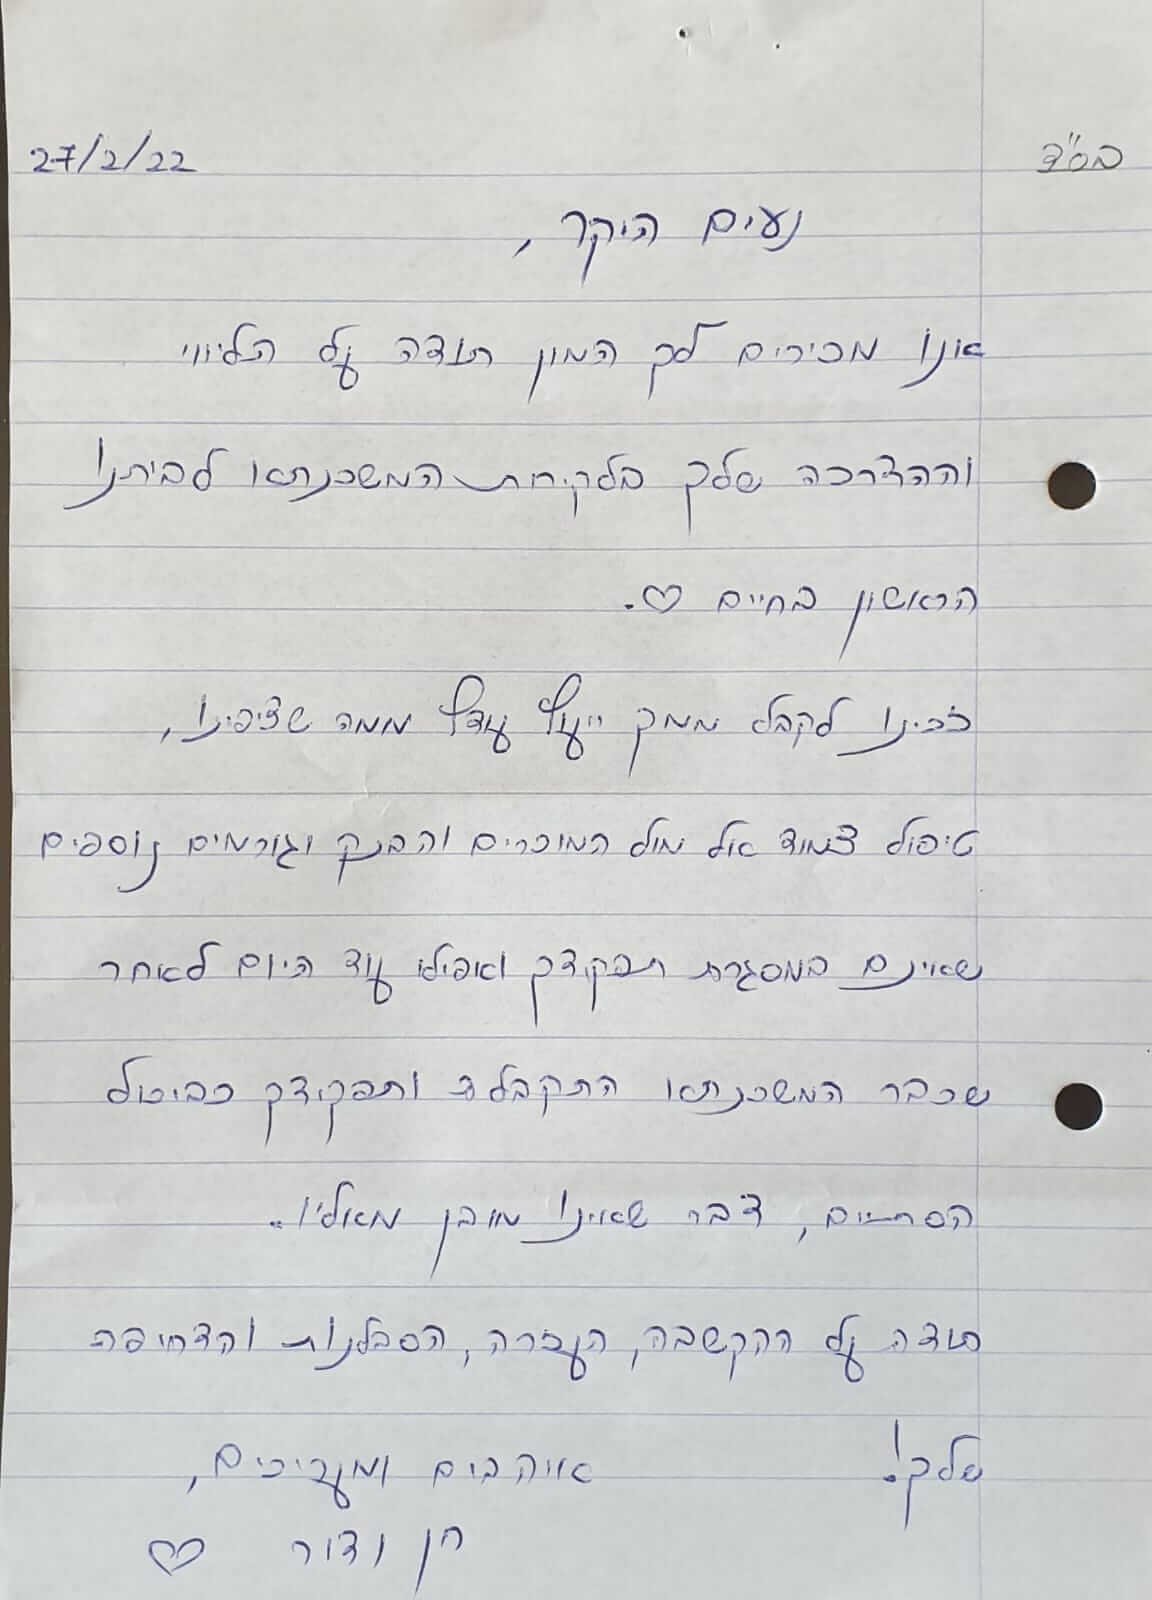 בס"ד 27/2/22
נעים היקר,
אנו מכירים לך המון תודה על הליווי
וההדרכה שלך בלקיחת המשכנתא לביתנו
הראשון בחיים ♡.
זכינו לקבל ממך ייעוץ עודף ממה שציפינו,
טיפול צמוד אל מול המוכרים והבנק וגורמים נוספים
שאינם במסגרת תפקידך ואפילו עוד היום לאחר
שכבר המשכנתא התקבלה ותפקידך כביכול
הסתיים, דבר שאינו מובן מאליו.
תודה על ההקשבה, העזרה, הסבלנות והדחיפה
שלך! אוהבים ומעריכים,
חן ודור ♡